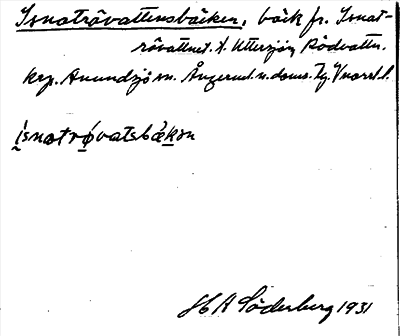 Isnotrövattensbäcken, bäck fr. Isnot-
rövattnet t. Uttersjön, Rödvattn.
krp. Anundsjö sn. Ångerml. n. doms. Tg. V norrl. l.
ísnotrǿvatsbækɔn
H A Söderberg 1931